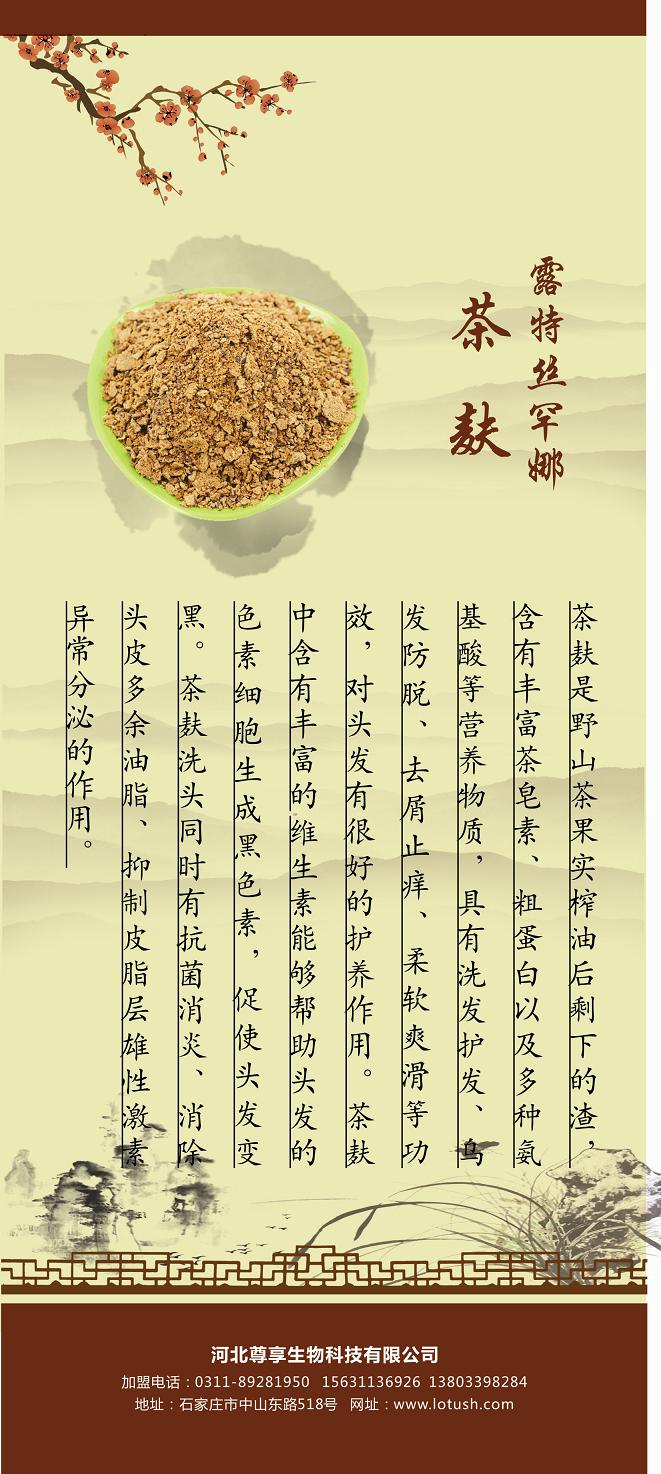 露特丝罕娜
茶麸
茶麸是野山茶果实榨油后剩下的渣，
含有丰富茶皂素、粗蛋白以及多种氨
基酸等营养物质，具有洗发护发、乌
发防脱、去屑止痒、柔软爽滑等功
效，对头发有很好的护养作用。茶麸
中含有丰富的维生素能够帮助头发的
色素细胞生成黑色素，促使头发变
黑。茶麸洗头同时有抗菌消炎、消除
头皮多余油脂、抑制皮脂层雄性激素
异常分泌的作用。
河北尊享生物科技有限公司
加盟电话：0311-89281950 15631136926 13803398284
地址：石家庄市中山东路518号 网址：www.lotush.com